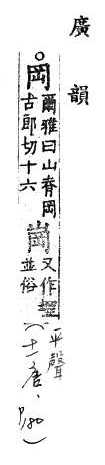 廣韻
○岡爾雅曰山脊岡古郎切十六崗又作堽並俗
平聲
(十一唐、p180)